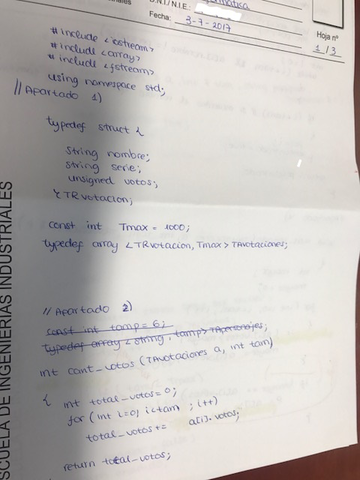 D.N.I / N.I.E.
Fecha: 3-7-2017
Hoja nº
1 / 3
# include <iostream>
# include <array>
# include <fstream>
using namespace std;
// Apartado 1)
typedef struct {
string nombre;
string serie;
unsigned votos;
} TRvotacion;
const int Tmax = 1000;
typedef array <TRvotacion, Tmax> TAvotaciones;
// Apartado 2)
const int tamp = 6;
typedef array <string, tamp> TApersonajes;
int cant_votos (TAvotaciones a, int tam)
{ int total_votos = 0;
for (int i=0; i<tam ; i++)
total_votos += a[i].votos;
return total_votos;
ESCUELA DE INGENIERÍAS INDUSTRIALES